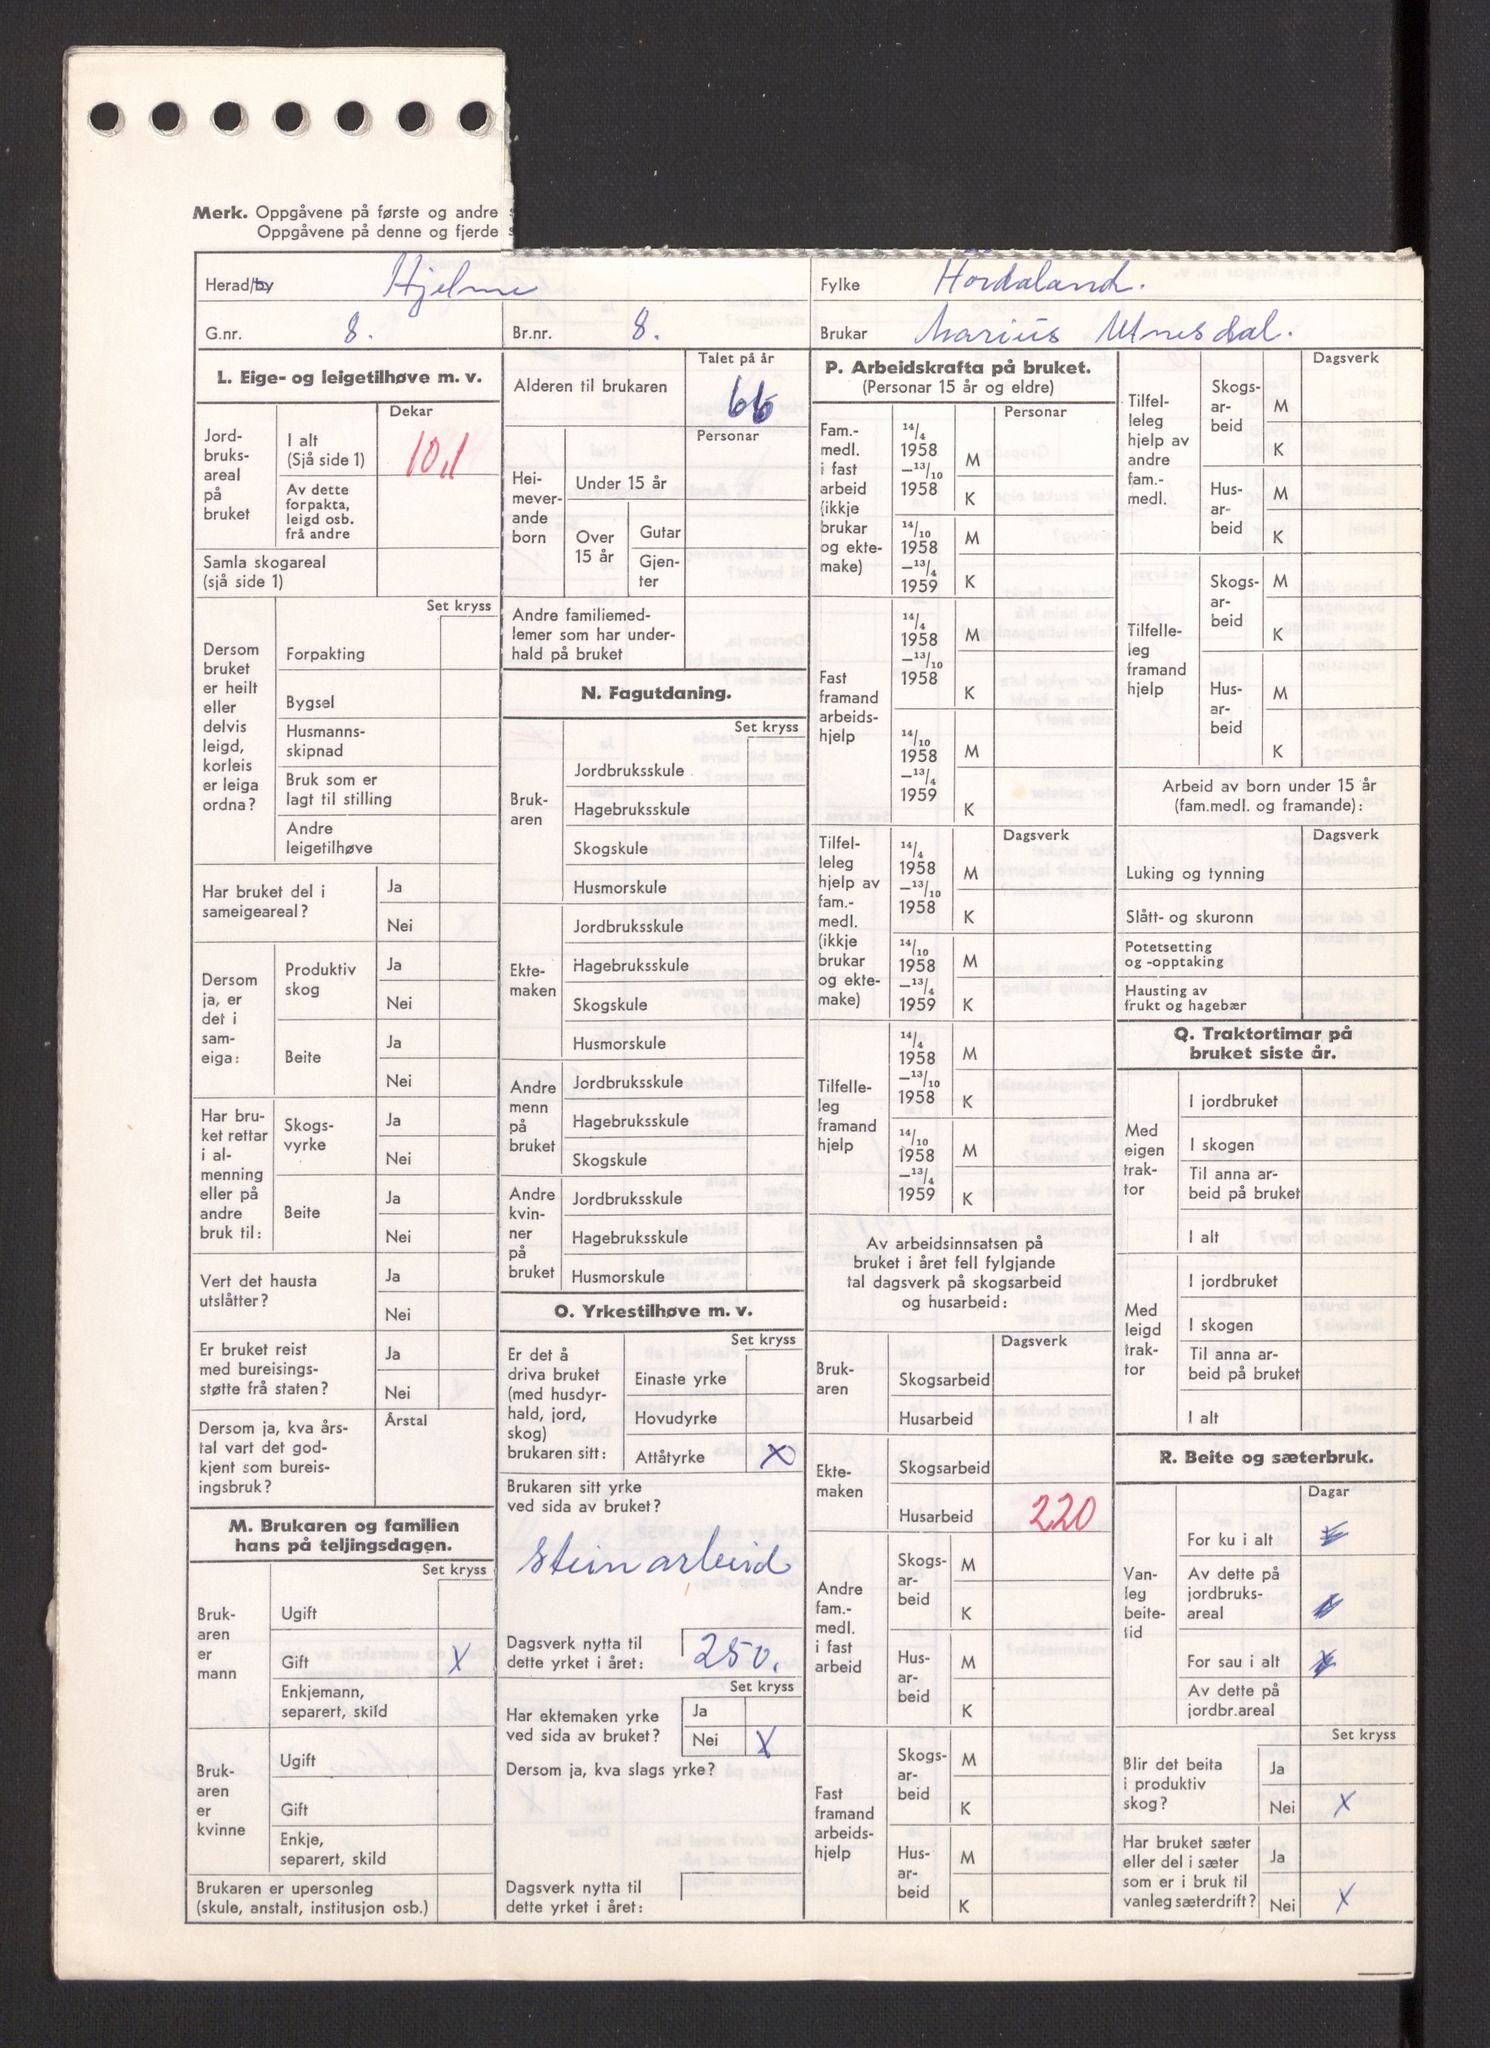 Merk. Oppgåvene på første og andre s
Oppgåvene på denne og fjerde s
Herad/by Hjelme
Fylke Hordaland.
G.nr. 8.
Br.nr. 8.
Brukar Marius Utnesdal.
L. Eige- og leigetilhøve m. v.
Dekar
Jord-
bruks-
areal
på
bruket
I alt
(Sjå side 1)
10,1
Av dette
forpakta,
leigd osb.
frå andre
Samla skogareal
(sjå side 1)
Set kryss
Dersom
bruket
er heilt
eller
delvis
leigd,
korleis
er leiga
ordna?
Forpakting
Bygsel
Husmanns-
skipnad
Bruk som er
lagt til stilling
Andre
leigetilhøve
Har bruket del i
sameigeareal?
Ja
Nei
Dersom
ja, er
det i
sam-
eiga:
Produktiv
skog
Ja
Nei
Beite
Ja
Nei
Har bru-
ket rettar
i al-
menning
eller på
andre
bruk til:
Skogs-
vyrke
Ja
Nei
Beite
Ja
Nei
Vert det hausta
utslåtter?
Ja
Nei
Er bruket reist
med bureisings-
støtte frå staten?
Ja
Nei
Dersom ja, kva års-
tal vart det god-
kjent som bureis-
ingsbruk?
Årstal
M. Brukaren og familien
hans på teljingsdagen.
Set kryss
Bruk-
aren
er
mann
Ugift
Gift X
Enkjemann,
separert, skild
Bruk-
aren
er
kvinne
Ugift
Gift
Enkje,
separert, skild
Brukaren er upersonleg
(skule, anstalt, institusjon osb.)
Talet på år
Alderen til brukaren 66
Personar
Hei-
mever-
ande
born
Under 15 år
Over
15 år
Gutar
Gjen-
ter
Andre familiemed-
lemer som har under-
hald på bruket
N. Fagutdaning.
Set kryss
Bruk-
aren
Jordbruksskule
Hagebruksskule
Skogskule
Husmorskule
Ekte-
maken
Jordbruksskule
Hagebruksskule
Skogskule
Husmorskule
Andre
menn
på
bruket
Jordbruksskule
Hagebruksskule
Skogskule
Andre
kvin-
ner
på
bruket
Jordbruksskule
Hagebruksskule
Husmorskule
O. Yrkestilhøve m. v.
Set kryss
Er det å
driva bruket
(med husdyr-
hald, jord,
skog)
brukaren sitt:
Einaste yrke
Hovudyrke
Attåtyrke X
Brukaren sitt yrke
ved sida av bruket?
steinarbeid
Dagsverk nytta til
dette yrket i året: 250.
Set kryss
Har ektemaken yrke
ved sida av bruket?
Ja
Nei X
Dersom ja, kva slags yrke?
Dagsverk nytta til
dette yrket i året:
P. Arbeidskrafta på bruket.
(Personar 15 år og eldre)
Personar
Fam.-
medl.
i fast
arbeid
(ikkje
brukar
og ekte-
make)
14/4
1958
—13/10
1958
M
K
14/10
1958
—13/4
1959
M
K
Fast
framand
arbeids-
hjelp
14/4
1958
—13/10
1958
M
K
14/10
1958
—13/4
1959
M
K
Dagsverk
Tilfel-
leleg
hjelp av
fam.-
medl.
(ikkje
brukar
og ekte-
make)
14/4
1958
—13/10
1958
M
K
14/10
1958
—13/4
1959
M
K
Tilfelle-
leg
framand
hjelp
14/4
1958
—13/10
1958
M
K
14/10
1958
—13/4
1959
M
K
Av arbeidsinnsatsen på
bruket i året fell fylgjande
tal dagsverk på skogsarbeid
og husarbeid:
Dagsverk
Bruk-
aren
Skogsarbeid
Husarbeid
Ekte-
maken
Skogsarbeid
Husarbeid 220
Andre
fam.-
medl.
i fast
arbeid
Skogs-
ar-
beid
M
K
Hus-
ar-
beid
M
K
Fast
framand
arbeids-
hjelp
Skogs-
ar-
beid
M
K
Hus-
ar-
beid
M
K
Dagsverk
Tilfel-
leleg
hjelp av
andre
fam.-
medl.
Skogs-
ar-
beid
M
K
Hus-
ar-
beid
M
K
Tilfelle-
leg
framand
hjelp
Skogs-
ar-
beid
M
K
Hus-
ar-
beid
M
K
Arbeid av born under 15 år
(fam.medl. og framande):
Dagsverk
Luking og tynning
Slått- og skuronn
Potetsetting
og -opptaking
Hausting av
frukt og hagebær
Q. Traktortimar på
bruket siste år.
Med
eigen
trak-
tor
I jordbruket
I skogen
Til anna ar-
beid på bruket
I alt
Med
leigd
trak-
tor
I jordbruket
I skogen
Til anna ar-
beid på bruket
I alt
R. Beite og sæterbruk.
Dagar
Van-
leg
beite-
tid
For ku i alt
Av dette på
jordbruks-
areal
For sau i alt
Av dette på
jordbr.areal
Set kryss
Blir det beita
i produktiv
skog?
Ja
Nei X
Har bruket sæter
eller del i sæter
som er i bruk til
vanleg sæterdrift?
Ja
Nei X